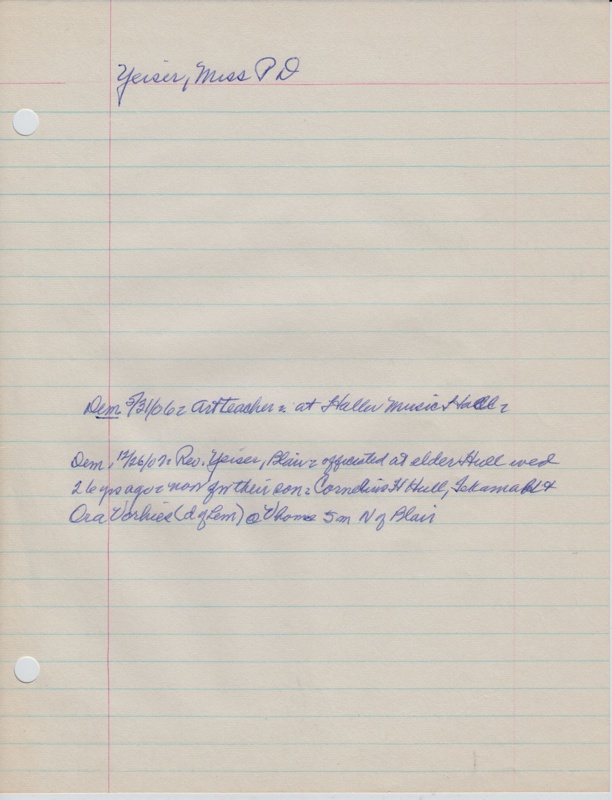 Yeiser, Miss P D
Dem 5/31/06 = Art teacher = at Haller Music Hall =
Dem, 12/26/07 = Rev. Yeiser, Blair = officiated at elder Hull wed
26 yrs ago = now for their son = Cornelius H Hull, Tekamah &
Ora Vorhies (d of Lem) @ V home 5m N of Blair